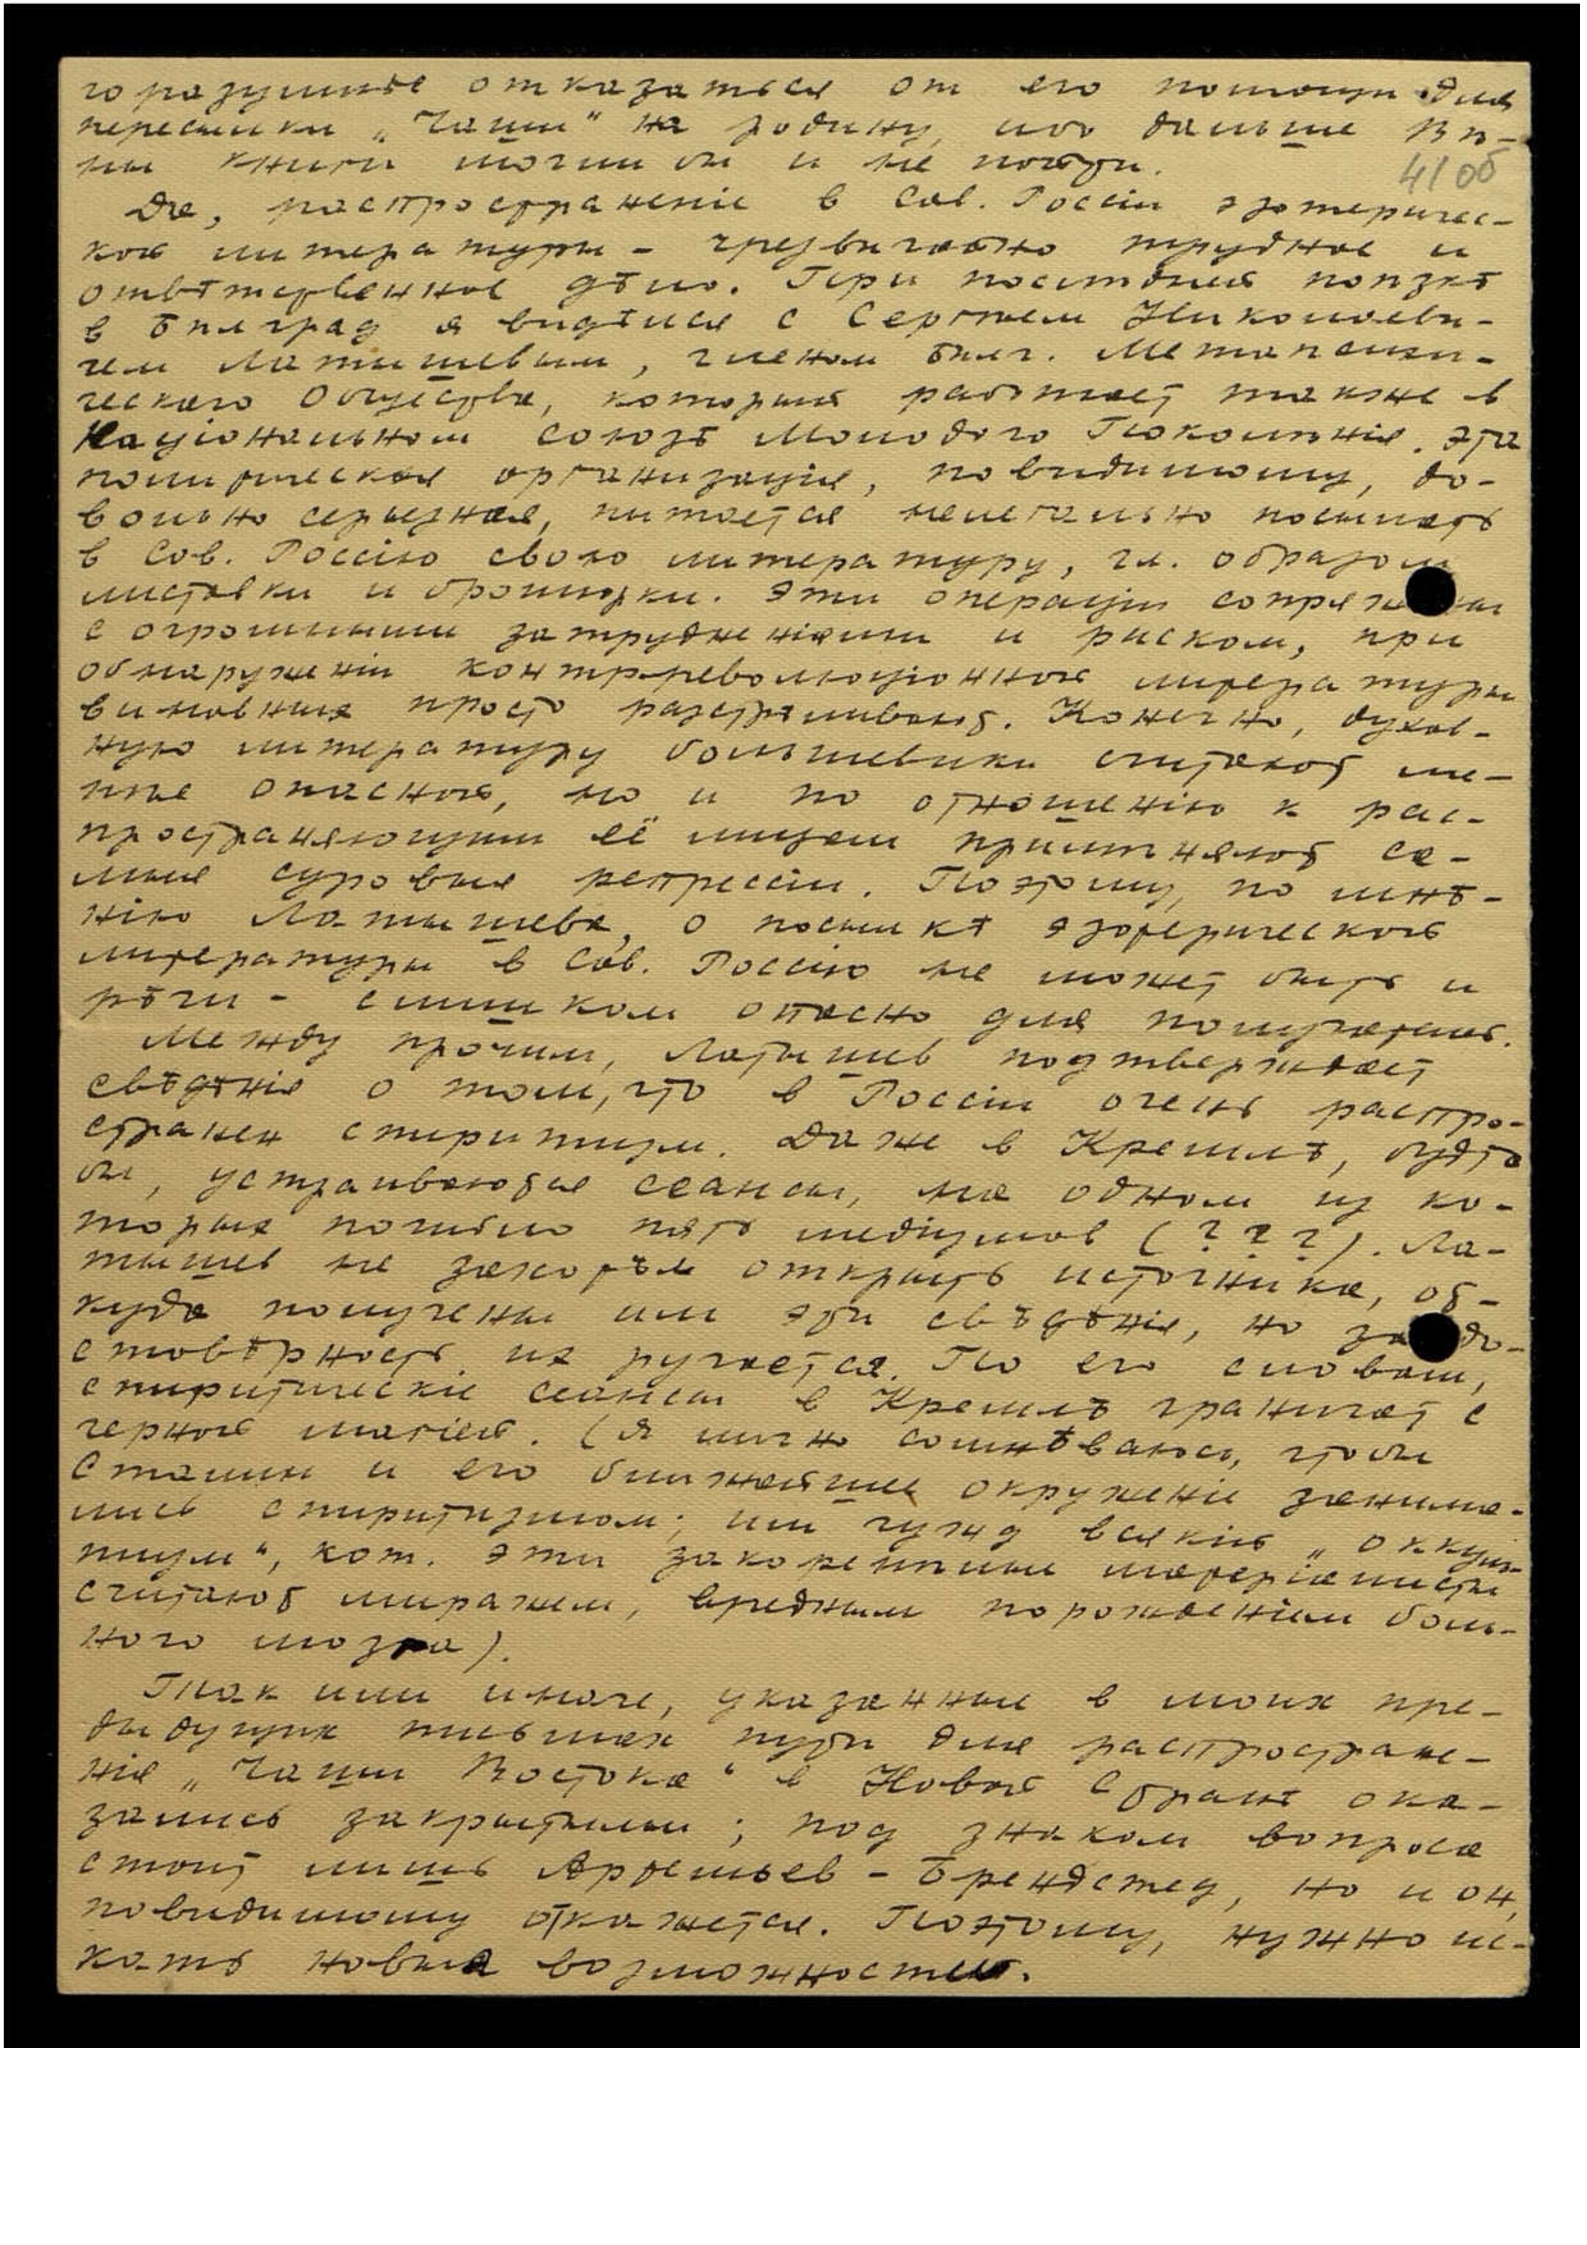 горазумнѣе отказаться от его помощи для
пересылки „Чаши" на родину, ибо дальше Вѣ-
ны книги могли бы и не пойти.
41 об
Да, распространеніе в Сов. Россіи эзотеричес-
кой литературы – чрезвычайно трудное и
отвѣтственное дѣло. При послѣдней поѣздкѣ
в Бѣлград я видѣлся с Сергѣем Николаеви-
чем Латышевым, членом Бѣлг. Метапсихи-
ческаго Общества, который работает также в
Національном Союзѣ Молодого Поколѣнія. Эта
политическая организація, повидимому, до-
вольно серьезная, пытается нелегально посылать
в Сов. Россію свою литературу, гл. образом
листовки и брошюрки. Эти операціи сопряжены
с огромными затрудненіями и риском, при
обнаруженіи контрреволюціонной литературы
виновных просто разстрѣливают. Конечно, духов-
ную литературу большевики считают ме-
нѣе опасной, но и по отношенію к рас-
пространяющим её лицам примѣняют са-
мыя суровыя репрессіи. Поэтому, по мнѣ-
нію Латышева, о посылкѣ эзотерической
литературы в Сов. Россію не может быть и
рѣчи – слишком опасно для получателей.
Между прочим, Латышев подтверждает
свѣдѣнія о том, что в Россіи очень распро-
странен спиритизм. Даже в Кремлѣ, будто
бы, устраиваются сеансы, на одном из ко-
торых погибло пять медіумов (???). Ла-
тышев не захотѣл открыть источника, от-
куда получены им эти свѣдѣнія, но за до-
стовѣрность их ручается. По его словам,
спиритическіе сеансы в Кремлѣ граничат с
черной магіей. (Я лично сомнѣваюсь, чтобы
Сталин и его ближайшее окруженіе занима-
лись спиритизмом; им чужд всякій „оккуль-
тизм", кот. эти закоренѣлые матеріалисты
считают миражем, вредным порожденіем боль-
ного мозга).
Так или иначе, указанные в моих пре-
дыдущих письмах пути для распростране-
нія „Чаши Востока" в Новой Странѣ ока-
зались закрытыми; под знаком вопроса
стоит лишь Арфельев – Брендстед, но и он,
повидимому откажется. Поэтому, нужно ис-
кать новыя возможности.